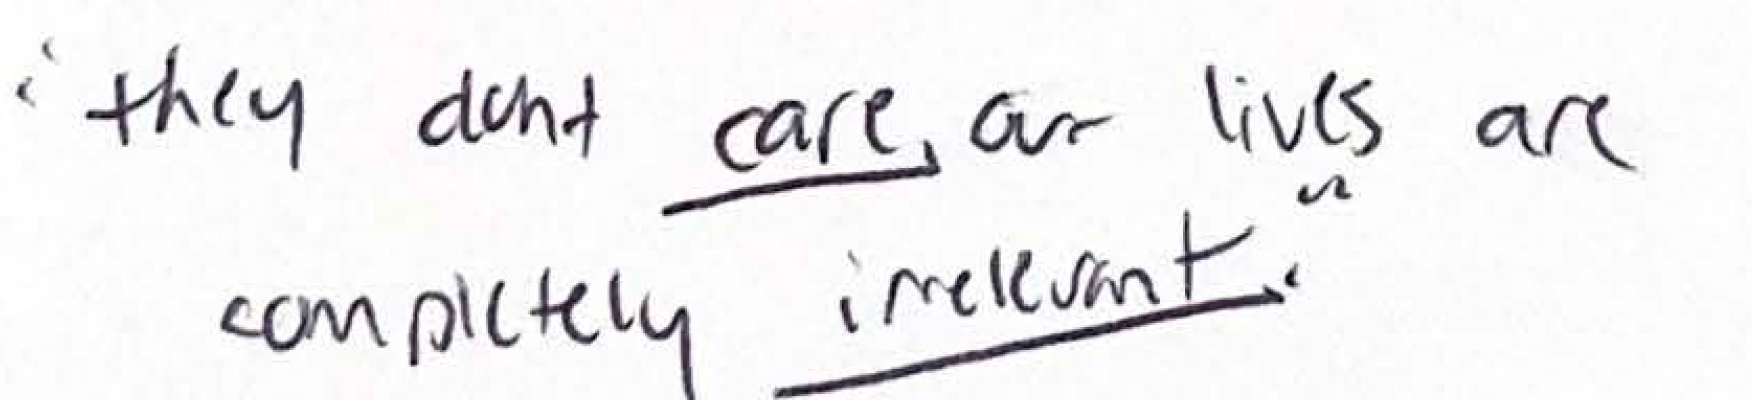 "they dont care, our lives are
completely irrelevant."